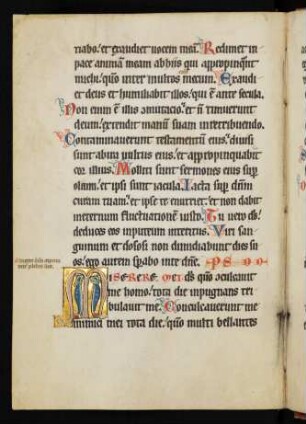 tiabo. et exaudiet uocem meā. Redimet in
pace animā meam ab hiis qui appropinq̄nt
michi. qm̄ inter multos mecum. Exaudi
et deus et humiliabit illos. qui ē ante secula.
Non enim ē illis ōmutatio. et ñ timuerunt
deum. extendit manū suam in retribuendo.
Contaminauerunt testamentū eius. diuisi
sunt ab ira uultus eius. et appropinquabit
cor illius. Molliti sunt sermones eius sup̄
oleum. et ipsi sunt iacula. Iacta sup̄ dn̄m
curam tuam. et ipse te enutriet. et non dabit
in eternum fluctuationem iusto. Tu uero ds̄
deduces eos in puteum interitus. Viri san
guinum et dolosi non dimidiabunt dies su
os. ego autem spabo in te dn̄e.
MISERERE mei ds̄ qm̄ ɔculcauit
me homo. tota die inpugnans tri
bulauit me. Conculcauerunt me
inimici mei tota die. qm̄ multi bellantes